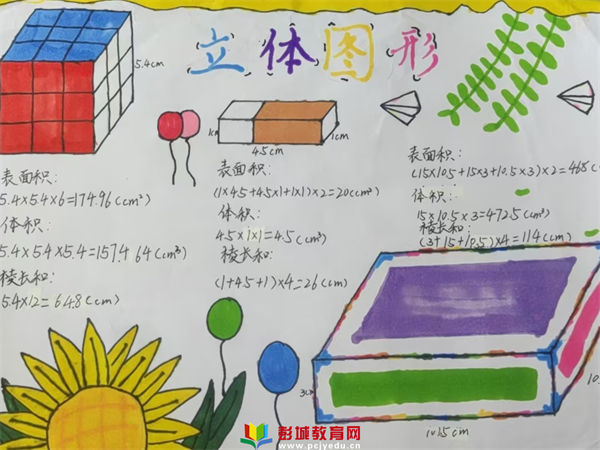 立体图形
5.4cm
表面积:
5.4×5.4×6=174.96(cm²)
体积:
5.4×5.4×5.4=157.464(cm³)
棱长和:
5.4×12=64.8(cm)
1cm
4.5cm
表面积:
(1×4.5+4.5×1+1×1)×2=20(cm²)
体积:
4.5×1×1=4.5(cm³)
棱长和:
(1+4.5+1)×4=26(cm)
表面积:
(15×10.5+15×3+10.5×3)×2=468(c
体积:
15×10.5×3=472.5(cm³)
棱长和:
(3+15+10.5)×4=114(cm)
3c
10.
彭城教育网
www.pcjyedu.cn